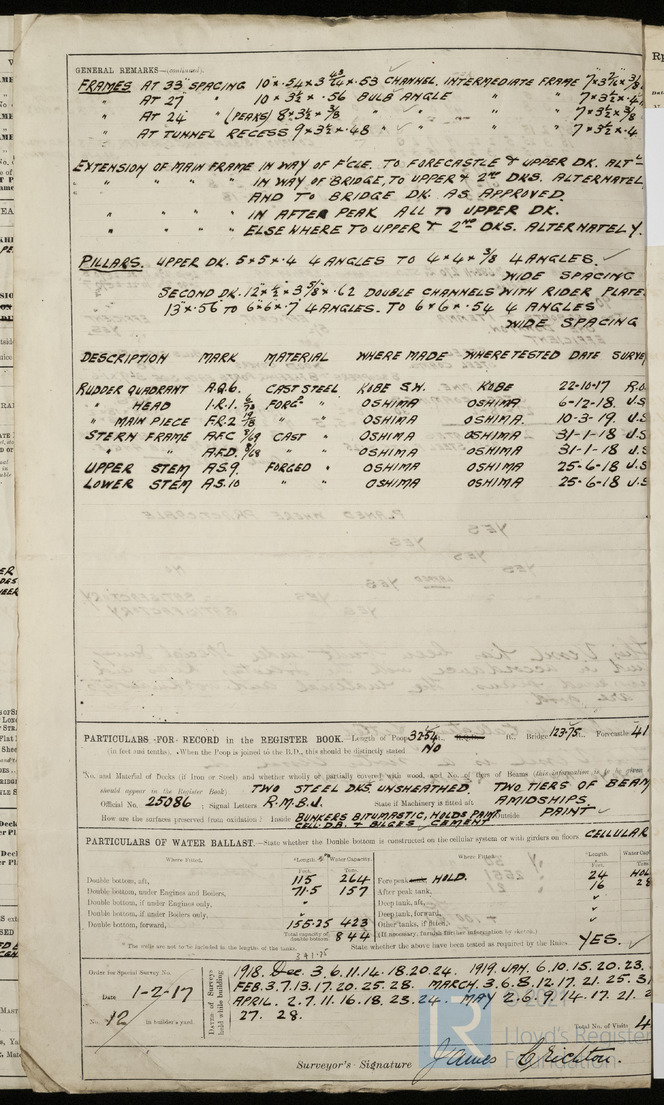 GENERAL REMARKS—(continued).
FRAMES AT 33" SPACING 10" × .54 × 3 43/64 × .53 CHANNEL. INTERMEDIATE FRAME 7" × 3 7/16" × 3/8
" AT 27 " 10 × 3½ × .56 BULB ANGLE " " 7 × 3½ × .4
" AT 24" " (PEAKS) 8 × 3½ × 3/8 " " " " 7 × 3½ × 3/8
" AT TUNNEL RECESS 9 × 3½ × .48 " " 7 × 3½ × .4
EXTENSION OF MAIN FRAME IN WAY OF F'CLE. TO FORECASTLE & UPPER DK. ALT
" " " " IN WAY OF BRIDGE, TO UPPER & 2ND DKS. ALTERNATEL
AND TO BRIDGE DK. AS APPROVED.
" " " IN AFTER PEAK ALL TO UPPER DK.
" " " " ELSEWHERE TO UPPER & 2ND DKS. ALTERNATELY.
PILLARS. UPPER DK. 5 × 5 × .4 4 ANGLES TO 4 × 4 × 3/8 4 ANGLES.
WIDE SPACING
SECOND DK. 12" × ½" × 3 5/8" × .62 DOUBLE CHANNELS WITH RIDER PLATE
13" × .56 TO 6" × 6" × .7 4 ANGLES. TO 6 × 6 × .54 4 ANGLES
WIDE SPACING
DESCRIPTION MARK MATERIAL WHERE MADE WHERE TESTED DATE SURVEY
RUDDER QUADRANT A.Q.6. CAST STEEL KOBE S.W. KOBE 22-10-17 R.O
" HEAD I.R.1. FORGD " OSHIMA OSHIMA 6-12-18. U.S
" MAIN PIECE F.R.2 " " OSHIMA OSHIMA. 10-3-19. U.S
STERN FRAME A.F.C 8/69 CAST " OSHIMA OSHIMA 31-1-18 U.S
" " A.F.D. 8/68 " " OSHIMA OSHIMA 31-1-18 U.S
UPPER STEM A.S.9. FORGED " OSHIMA OSHIMA 25-6-18 U.S
LOWER STEM A.S.10 " " OSHIMA OSHIMA 25-6-18 U.S
PARTICULARS FOR RECORD in the REGISTER BOOK.—Length of Poop 32.54 ft., ft., Bridge 123.75 ft., Forecastle 41
(in feet and tenths). *When the Poop is joined to the B.D., this should be distinctly stated NO
No. and Material of Decks (if Iron or Steel) and whether wholly or partially covered with wood, and No. of tiers of Beams (this information is as given
should appear in the Register Book) TWO STEEL DKS UNSHEATHED. TWO TIERS OF BEAM
Official No. 25086 ; Signal Letters R.M.B.J. State if Machinery is fitted aft AMIDSHIPS
How are the surfaces preserved from oxidation? Inside BUNKERS BITUMASTIC, HOLDS PAINT Outside PAINT
CELL. D.B. & BILGES, CEMENT
PARTICULARS OF WATER BALLAST.—State whether the Double bottom is constructed on the cellular system or with girders on floors CELLULAR
Where Fitted. *Length. Water Capacity. Where Fitted. *Length. Water Cap
Feet. Tons. Feet.
Double bottom, aft, 115 264 Fore peak HOLD. 24 HOL
Double bottom, under Engines and Boilers, 71.5 157 After peak tank, 16 28
Double bottom, if under Engines only, " Deep tank, aft, "
Double bottom, if under Boilers only, " Deep tank, forward, "
Double bottom, forward, 155.25 423 Other tanks, if fitted, "
Total capacity of double bottom 844 (If necessary, furnish further information by sketch.)
* The wells are not to be included in the lengths of the tanks. State whether the above have been tested as required by the Rules YES.
341.75
Order for Special Survey No.
Date 1-2-17
No. 12 in builder's yard.
Dates of Surveys held while building
1918. Dec. 3. 6. 11. 14. 18. 20. 24. 1919. JAN. 6. 10. 15. 20. 23.
FEB. 3. 7. 13. 17. 20. 25. 28. MARCH. 3. 6. 8. 12. 17. 21. 25. 31
APRIL. 2. 7. 11. 16. 18. 23. 24. MAY 2. 6. 9. 14. 17. 21. 2
27. 28.
Total No. of Visits 4
© 2021
Lloyd's Register
Foundation
Surveyor's Signature James Crichton.